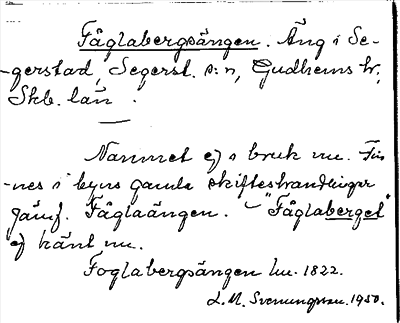 Fåglabergsängen. Äng i Se-
-gerstad, Segerst. s:n, Gudhems hr,
Skb. län.
Namnet ej i bruk nu. Fin
-nes i byns gamla skifteshandlingar
jämf. Fåglaängen. – "Fåglaberget"
ej känt nu.
Foglabergsängen hu. 1822.
L. M. Svenungsson. 1950.